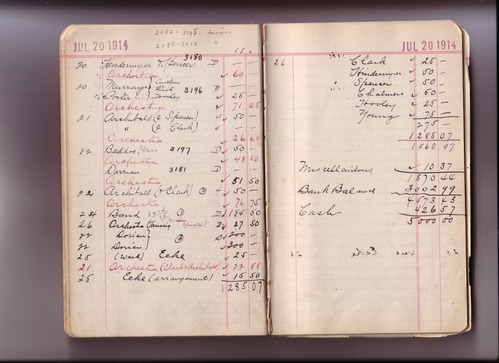 3180
JUL 20 1914
20 Hindermyer & Spencer D 50 —
Orchestra 60 —
20 Murray 3196 D
Hooley 25 —
Orchestra 71 25
21 Archibald (& Spencer) 50 —
" (& Clark) 50 —
Orchestra 26 60
22 3197 D 50 —
Orchestra 48 50
Dorian 3181 D
Orchestra 51 50
22 Archibald (& Clark) @ 50 —
Orchestra 76 75
Band @ D 184 50
26 Orchestra 27 50
22 Dorian @ 200 —
22 Dorian @ D 200 —
25 (Week) Ecke 25 —
21 Orchestra (Clark & Archibald) 55
25 Ecke (arrangements) 15 50
1285 07
JUL 20 1914
26 Clark 25 —
Hindermyer 50 —
" Spencer 50 —
Chalmers 50 —
Hooley 25 —
Young 75 —
275 —
1285 07
1560 07
Miscellaneous 10 37
1570 44
Bank Balance 3002 99
4573 43
Cash 426 57
5000 00